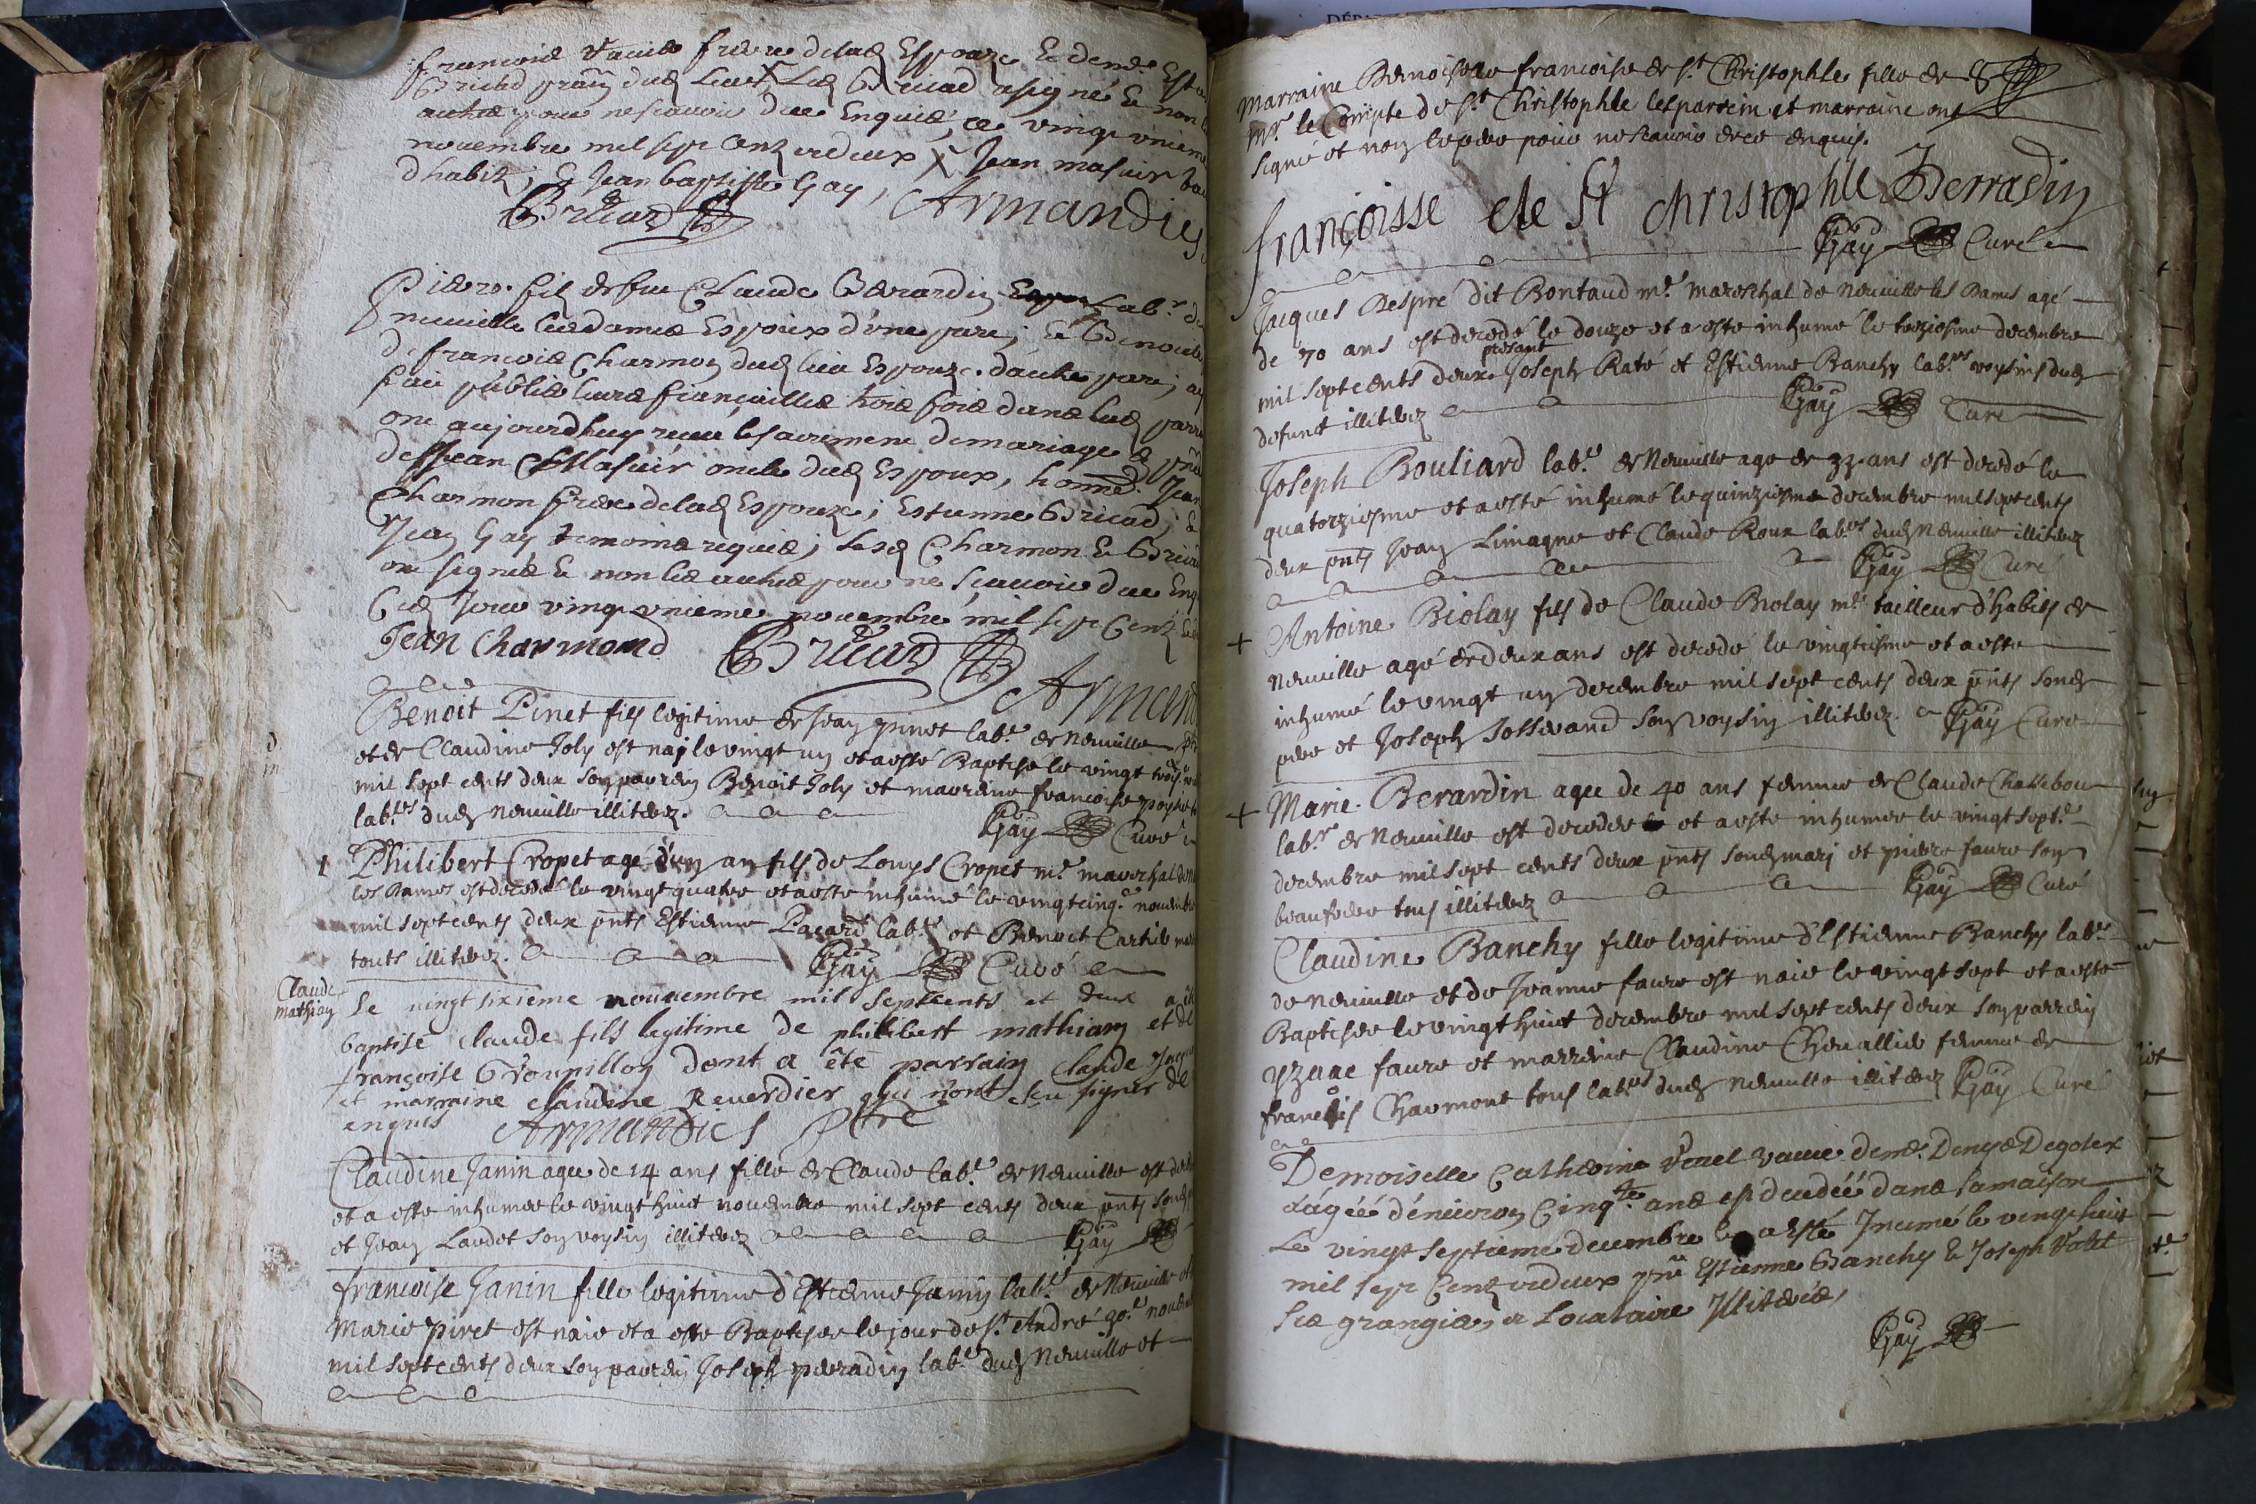 françoise vauué frere delad Espouze & deme Est
Bricad pnt dud Lieu, Led Bricad a signé & non les
autres pour ne scauoir due Enquis, ce vingt vnieme
nouembre mil sept Centz et deux X Jean masuir
d'habitz, & Jean baptiste Gay,
Bricad Armandies
Pierre fils de feu Claude Berardin Labr de
neuuille les dames Espoux d'une part; & Benoite
de françois Charmon dud lieu Espouze d'autre part;
fait publier leurs fiançailles trois fois dans lad parr
ont aujourdhuy receu le sacrement de mariage
Jean Masuir oncle dud Espoux, honned Jean
Charmon frere delad Espouze; Estienne Bricad, &
Jean Gay temoins requis; lesd Charmon & Bricad
ont signés & non les autres pour ne scauoir due Enq
Ced Jour vingt vnieme nouembre mil sept Centz
Jean Charmond Bricad Armand
Benoit Pinet fils legitime de Jean pinet labr de Neuuille
et de Claudine Joly est nay le vingt un et a esté Baptisé le vingt trois
mil sept cents deux son parrein Benoit Joly et marreine francoise
labrs dud Neuuille illiterez. Gay Curé
Philibert Cropet agé d'un an fils de Louys Cropet mr mareschal
les Dames est decedé le vingt quatre et a esté inhumé le vingt cinqe nouembre
mil sept cents deux pnts Estienne Pacard labr et Benoit Cartier
touts illiterez. Gay Curé
Claude
mathian
Le vingt sixieme nouuembre mil septcents et deux a été
baptisé claude fils legitime de philibert mathiany et de
françoise Groupillon dont a été parrain claude
et marraine claudine Reuerdier qui n'ont seu signer de
enquis Armandies ptre
Claudine Janin agée de 14 ans fille de Claude labr de Neuuille est
et a esté inhumée le vingt huit nouembre mil sept cents deux pnts
et Jean Laudet son voysin illiterez Gay
francoise Janin fille legitime d'Estienne Janin labr de Neuuille et
Marie Piret est naie et a esté Baptisée le jour de St André 30e nouemb
mil sept cents deux son parrein Joseph perradin labr dud Neuuille et
marraine Demoiselle francoise de St Christophle fille de
Mr le Compte de St Christophle les parrein et marraine ont
signé et non le pere pour ne scauoir de ce enquis.
françoisse de St christophle Berradin
Gay Curé
Jacques Despré dit Bontaud mr mareschal de Neuuille les Dames agé
de 70 ans est decedé le douze et a esté inhumé le treziesme decembre
présant
mil sept cents deux Joseph Raté et Estienne Banchy labrs voysins dud
defunct illiterez Gay Curé
Joseph Bouliard labr de Neuuille agé de 33 ans est decedé le
quatorziesme et a esté inhumé le quinziesme decembre mil sept cents
deux pnts Jean Limagne et Claude Roux labrs dud Neuuille illiterez
Gay Curé
Antoine Biolay fils de Claude Biolay mr tailleur d'habits de
Neuuille agé de deux ans est decedé le vingtiesme et a esté
inhumé le vingt un decembre mil sept cents deux pnts sond
pere et Joseph Josserand son voysin illiterez. Gay Curé
Marie Berardin agée de 40 ans femme de Claude
labr de Neuuille est decedée et a esté inhumée le vingt sept
decembre mil sept cents deux pnts sond mari et pierre faure son
beaufrere tous illiterez Gay Curé
Claudine Banchy fille legitime d'Estienne Banchy labr
de Neuuille et de Jeanne faure est naie le vingt sept et a esté
Baptisée le vingt huit decembre mil sept cents deux son parrein
yzaac faure et marreine Claudine Cheuallier femme de
francois Chaumont tous labrs dud Neuuille illiterez Gay Curé
Demoiselle Catherine vuel vauue demr Denys Degolex
âgée d'enuiron Cinqte ans est decedée dans sa maison
Le vingt septieme decembre & a esté Inumé le vingt huit
mil sept Centz et deux pnt Estienne Banchy & Joseph Volet
Ses grangier, et Locataire Jlliterés,
Gay